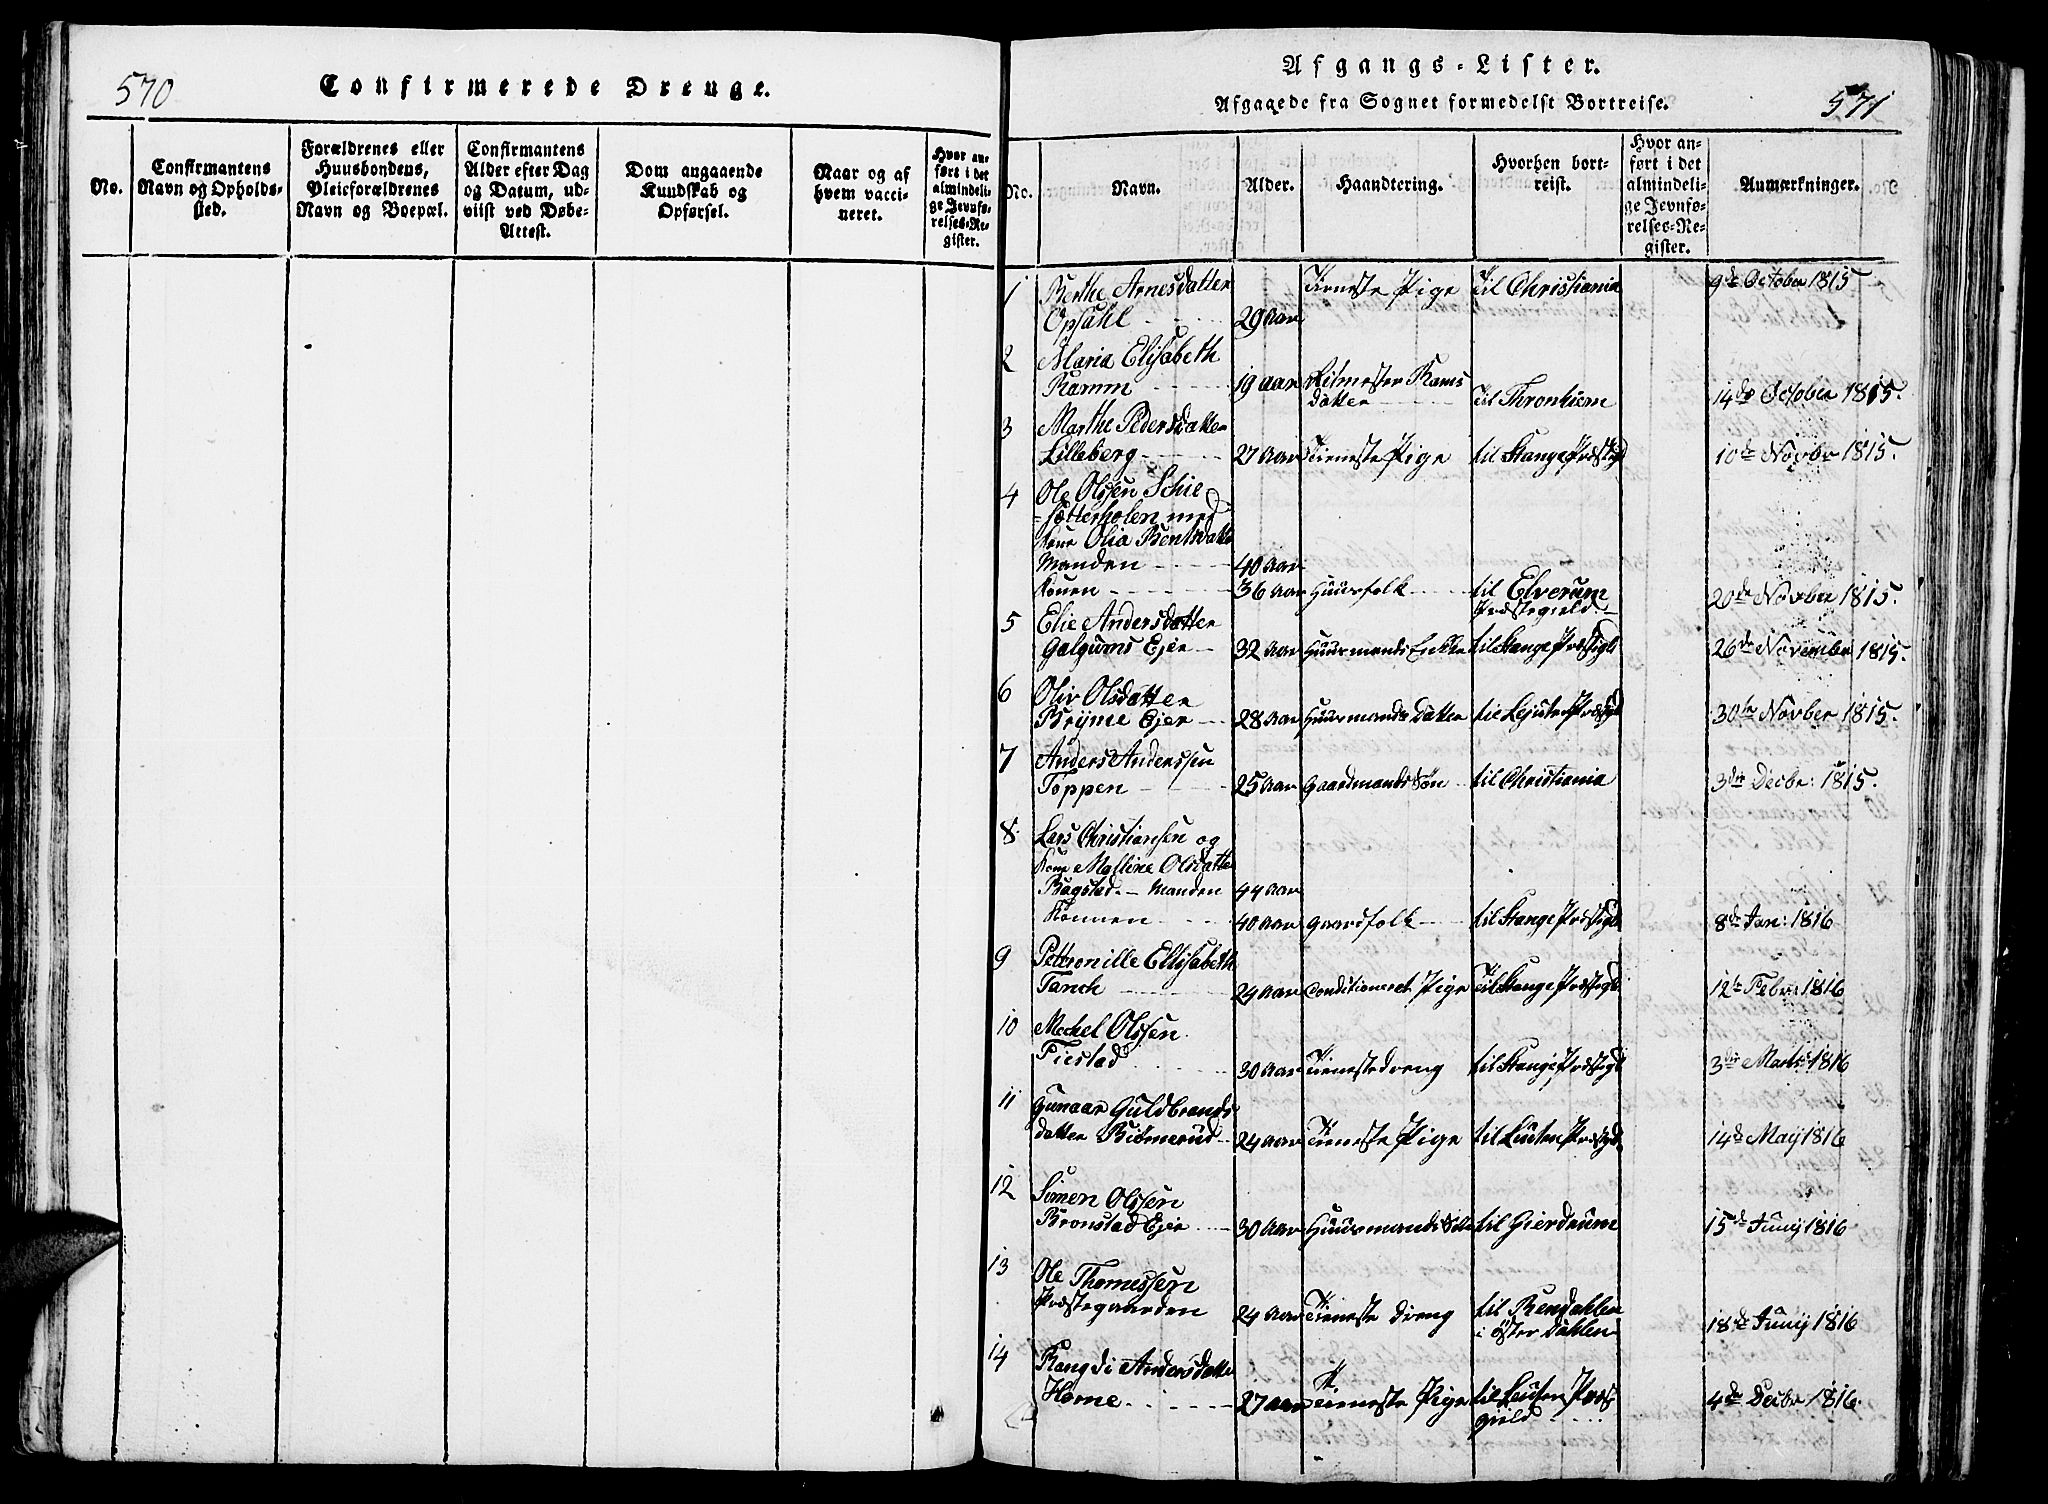 570
Confirmerede Drenge.
No.
Confirmantens
Navn og Opholds-
sted.
Forældrenes eller
Huusbondens,
Pleieforældrenes
Navn og Boepæl.
Confirmantens
Alder efter Dag
og Datum, ud-
viist ved Døbe-
Attest.
Dom angaaende
Kundskab og
Opførsel.
Naar og af
hvem vacci-
neret.
Hvor an-
ført i det
almindeli-
ge Jevnfø-
relses-Re-
gister.
Afgangs-Lister.
Afgagede fra Sognet formedelst Bortreise.
571
No.
Navn.
Alder.
Haandtering.
Hvorhen bort-
reist.
Hvor an-
ført i det
almindeli-
ge Jevnfø-
relses-Re-
gister.
Anmærkninger.
1 Berthe Arnesdatter Tieneste Pige til Christiania 9de October 1815
Opsahl 29 Aar
2 Maria Elisabeth
Ramm 19 aar Ritmester Rams
datter til Thronhiem 14de October 1815.
3 Marthe Pedersdatter
Lilleberg 27 Aar Tieneste Pige til Stange Præstegl 10de Novbr 1815.
4 Ole Olssen Schie
-sætterholen med
Kone Olia Bentsdatter
Manden 40 Aar
Konen 36 Aar Huusfolk til Elverum 20de Novber 1815.
Præstegield
5 Elie Andersdatter
Galgums Ejer 32 Aar Huusmands Enkke til Stange Præstigl 26de November 1815.
6 Oliv Olsdatter
Bryme Ejer 28 Aar Huusmands Datter til Lejuten Præstgl 30te Novber 1815.
7 Anders Anderssen
Toppen 25 Aar Gaardmands Søn til Christiania 3die Decbr: 1815.
8. Lars Christiansen og
Kone Malline Olsdatter
Bagstad. - Manden 44 Aar
Konnen 40 Aar Gaardfolk til Stange Præstigl 8de Jan: 1816
9 Petronille Ellisabeth
Tanch 24 Aar Conditioneret Pige til Stange Præstigl 12te Febr: 1816
10 Mechel Olssen
Fiestad 30 Aar Tienestedreng til Stange Præstigl 3die Marts 1816
11 Gunaar Guldbrands
datter Bitmerud 24 Aar Tieneste Pige til Lauten Præstgl 14de May 1816
12 Simen Olssen
Bronstad Ejer 30 Aar Huusmands til Gierdrum 15de Juny 1816
13 Ole Thomessen
Præstegaarden 24 Aar Tieneste dreng til Rendahlen 18de Juny 1816
i øster Dahlen
14 Rangdi Andersdatter
Horne 27 Aar Tieneste Pige til Leuten Præs 4de Decbr 1816.
gield